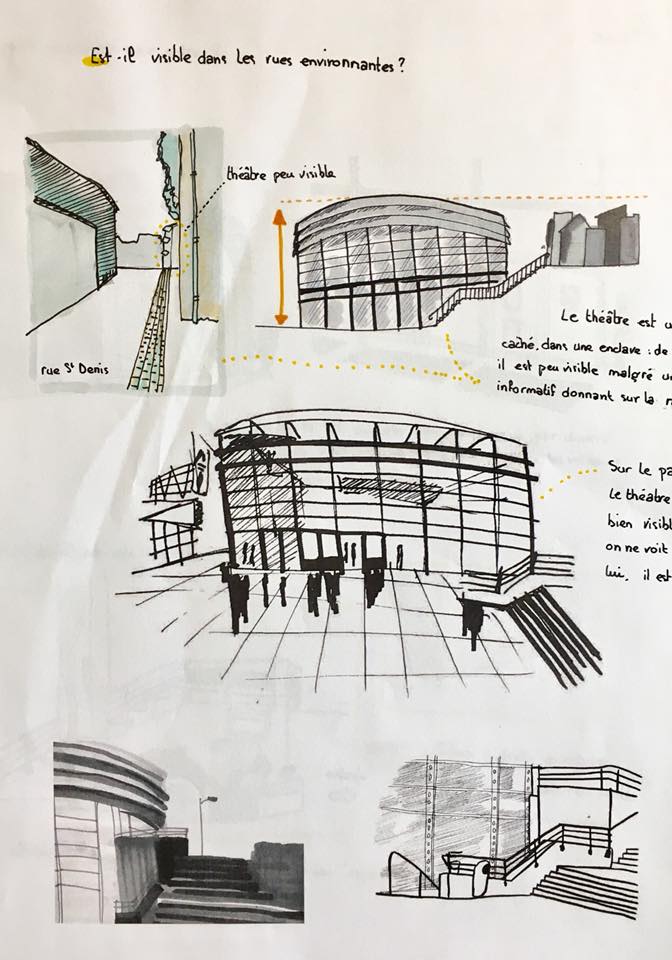 Est-il visible dans les rues environnantes ?
théâtre peu visible
rue St Denis
Le théâtre est
caché, dans une enclave : de
il est peu visible malgré
informatif donnant sur la
Sur le
le théâtre
bien
on ne voit
lui, il est